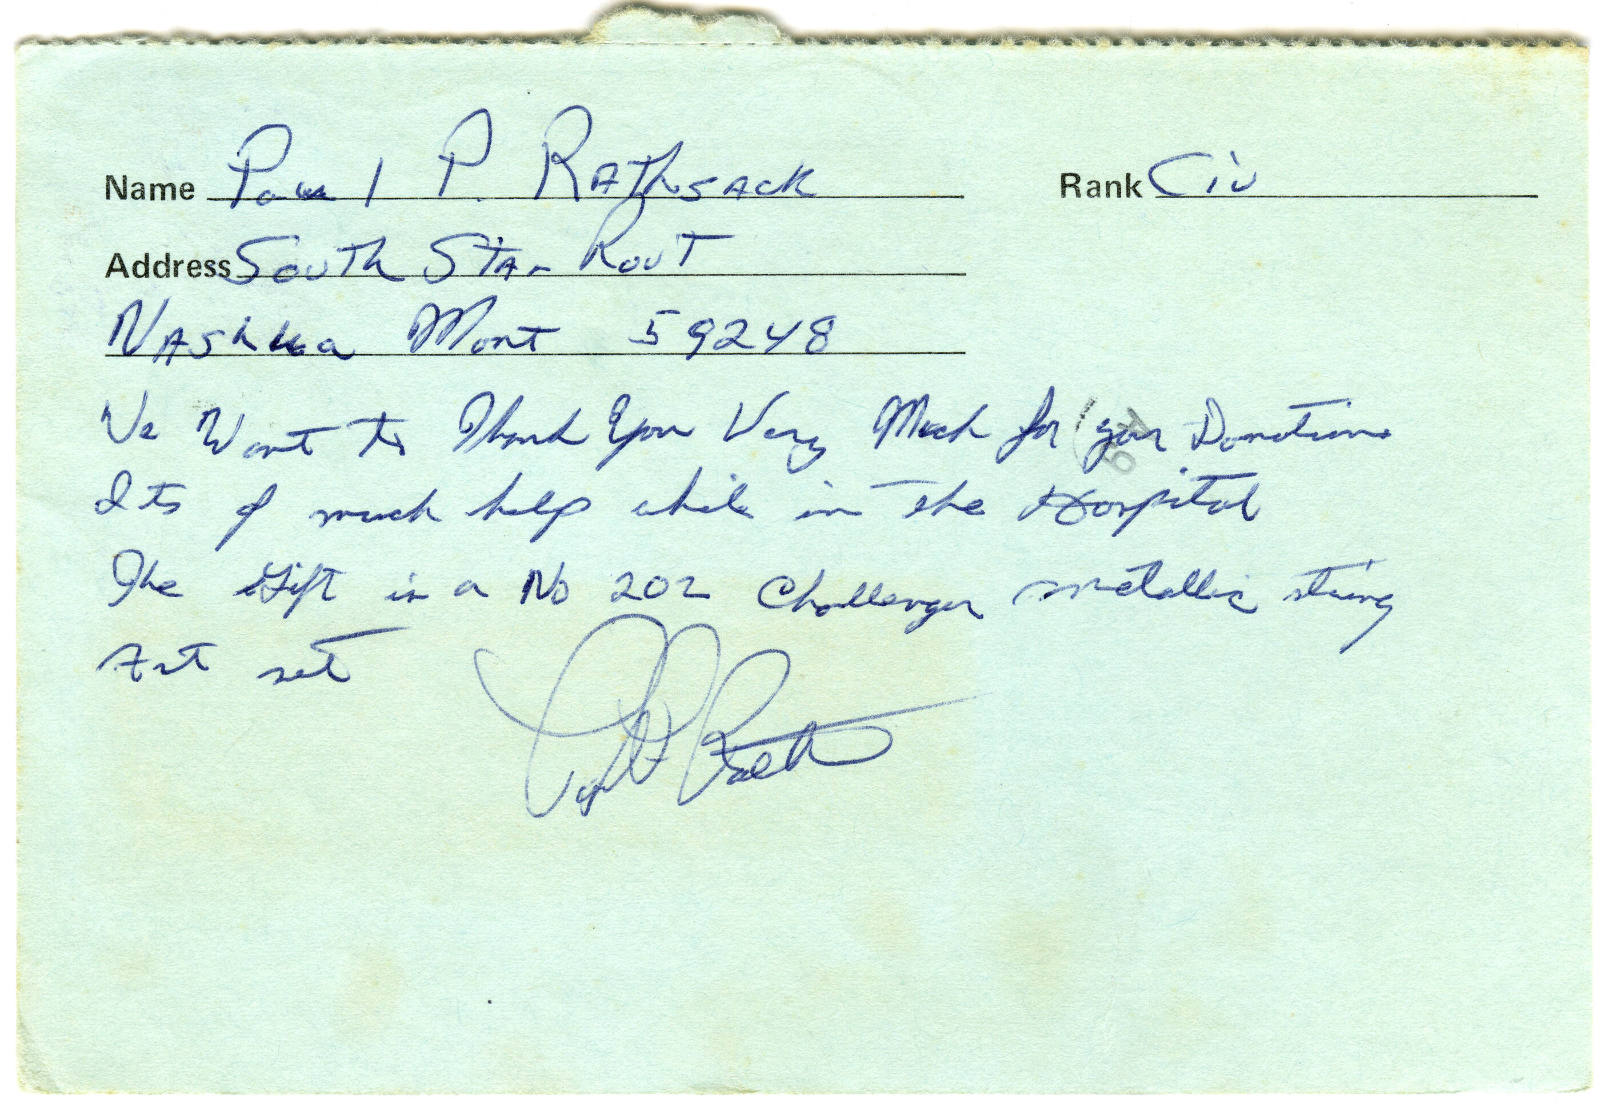 Name Paul P. Rathsack Rank Civ
Address South Star Rout
Nashua Mont 59248
We Want to Thank You Very Much for your Donation
Its of much help while in the Hospital
The Gift is a No 202 Challenger metallic string
Art set